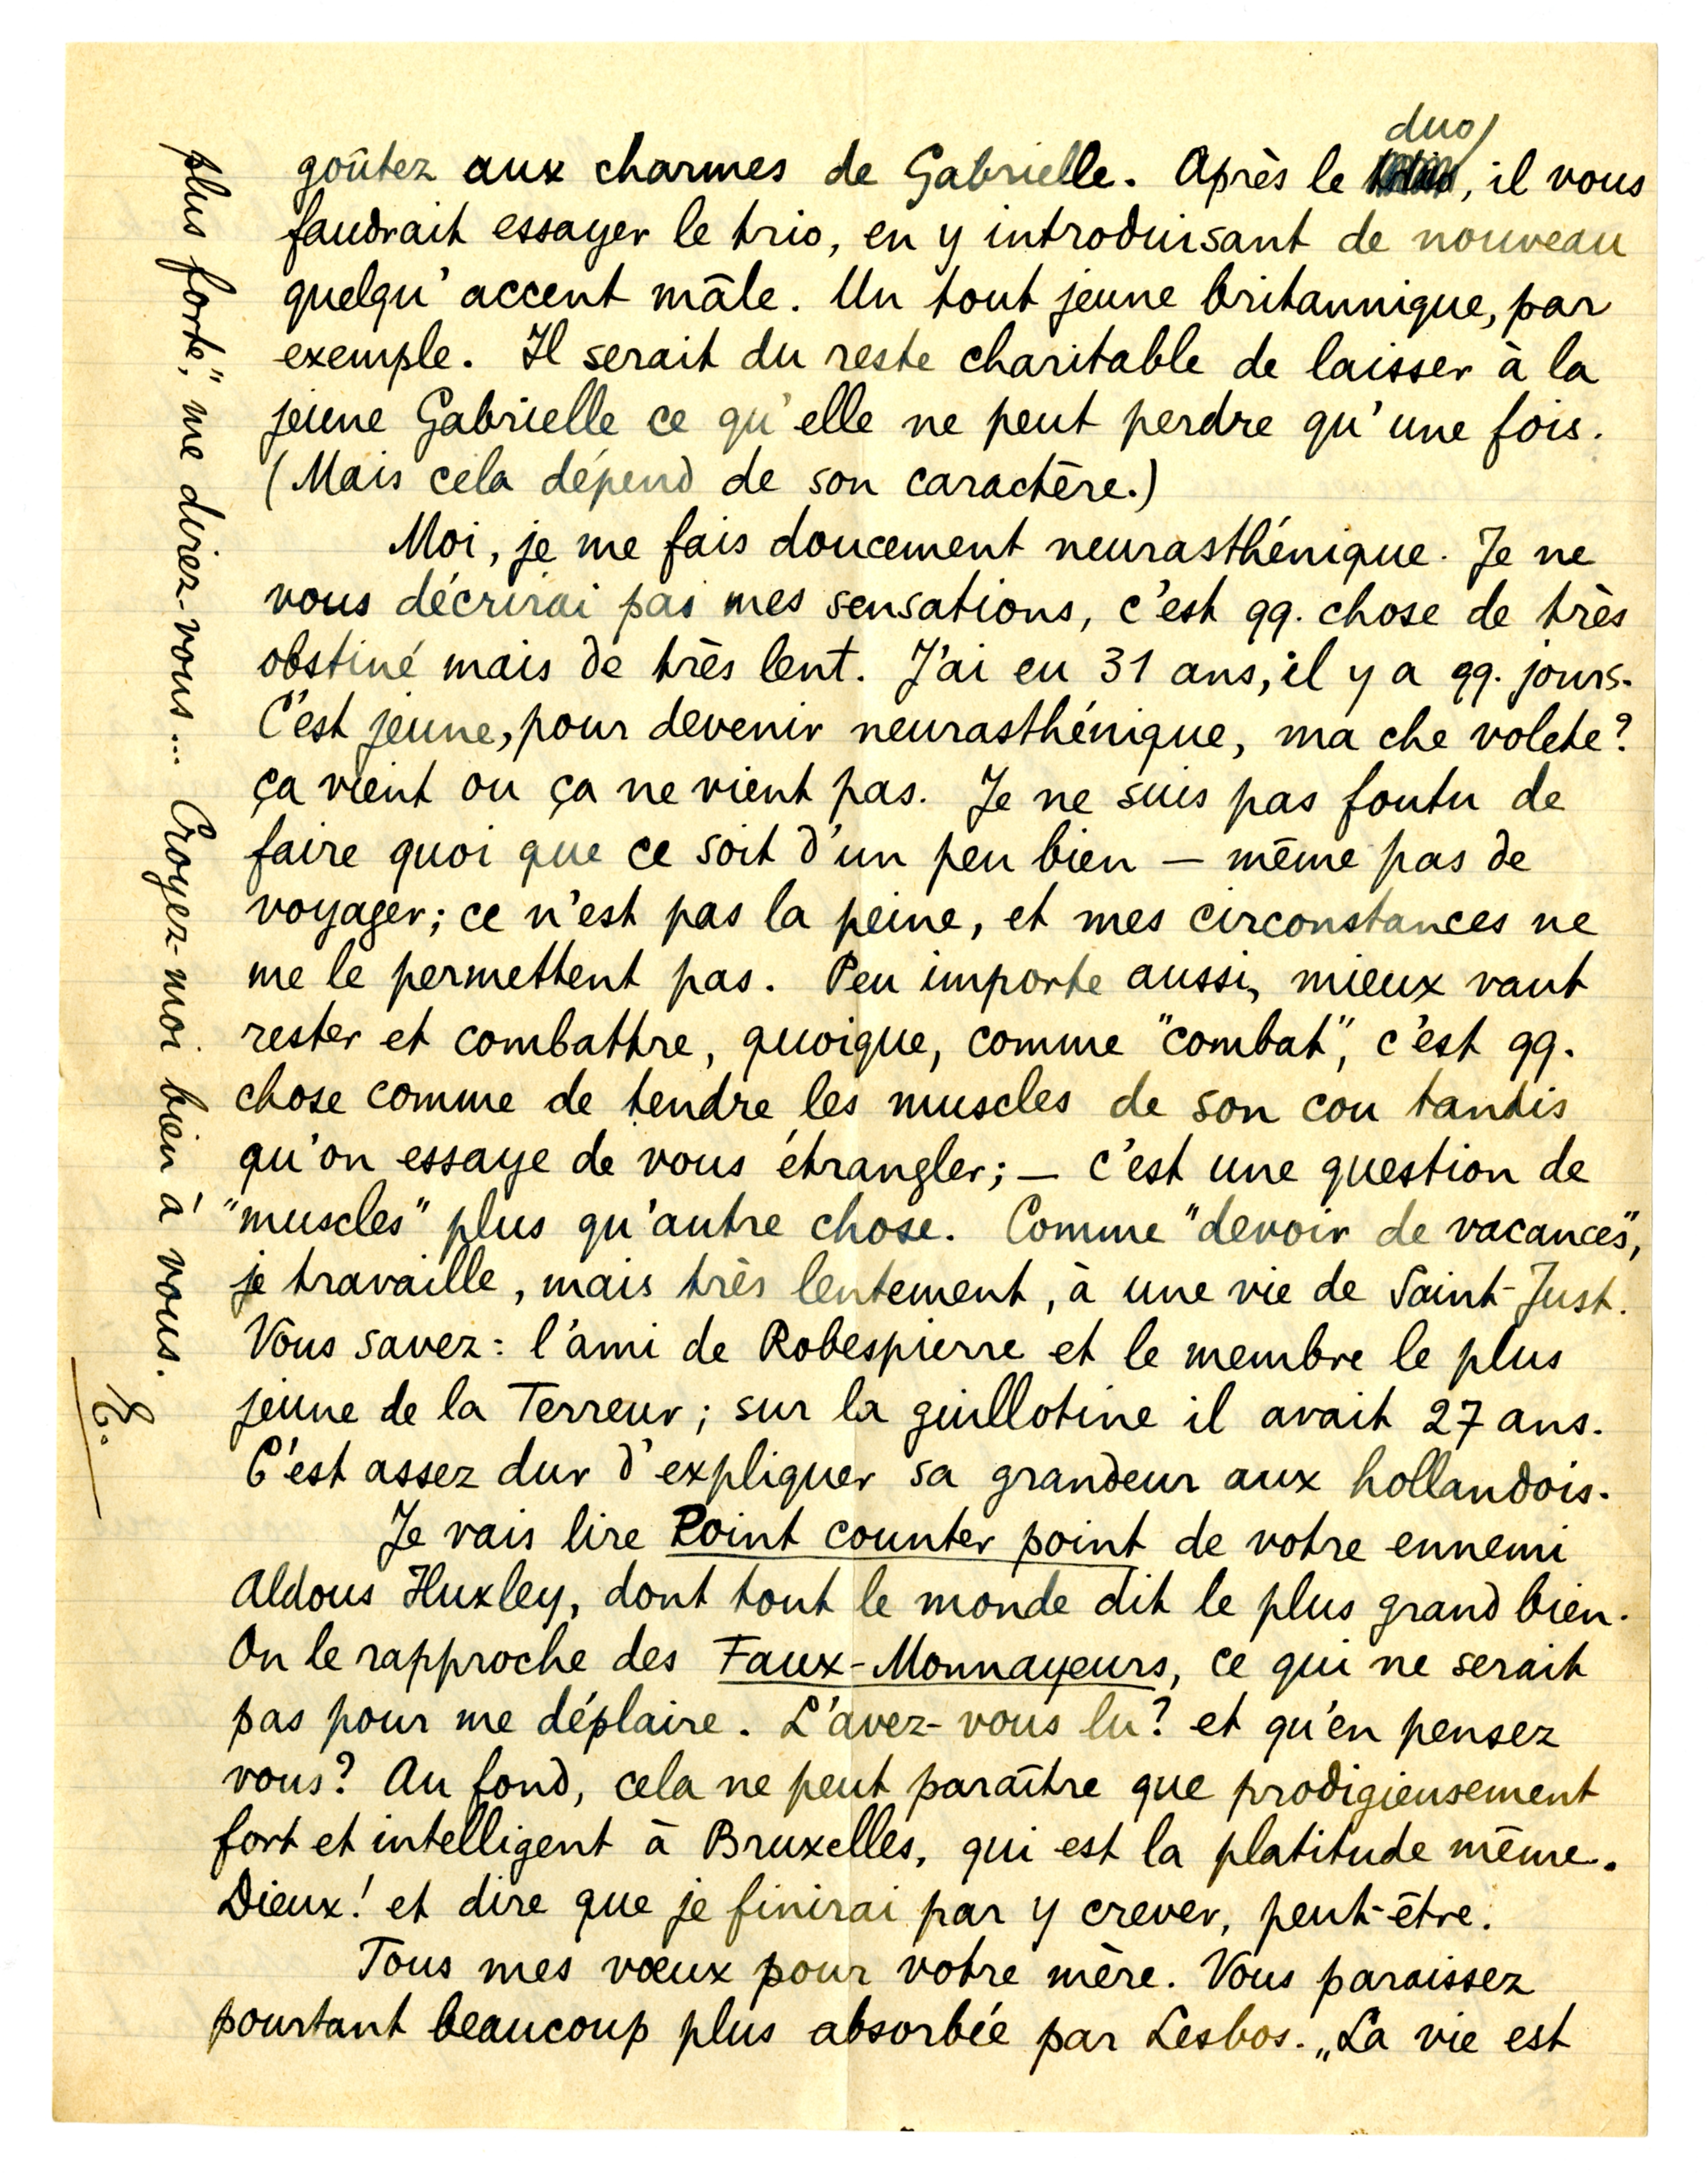 goûtez aux charmes de Gabrielle. Après le duo, il vous
faudrait essayer le trio, en y introduisant de nouveau
quelqu'accent mâle. Un tout jeune britannique, par
exemple. Il serait du reste charitable de laisser à la
jeune Gabrielle ce qu'elle ne peut perdre qu'une fois.
(Mais cela dépend de son caractère.)
Moi, je me fais doucement neurasthénique. Je ne
vous décrirai pas mes sensations, c'est qq. chose de très
obstiné mais de très lent. J'ai eu 31 ans, il y a qq. jours.
C'est jeune, pour devenir neurasthénique, ma che volete?
ça vient ou ça ne vient pas. Je ne suis pas foutu de
faire quoi que ce soit d'un peu bien — même pas de
voyager; ce n'est pas la peine, et mes circonstances ne
me le permettent pas. Peu importe aussi, mieux vaut
rester et combattre, quoique, comme "combat", c'est qq.
chose comme de tendre les muscles de son cou tandis
qu'on essaye de vous étrangler; — c'est une question de
"muscles" plus qu'autre chose. Comme "devoir de vacances",
je travaille, mais très lentement, à une vie de Saint-Just.
Vous savez: l'ami de Robespierre et le membre le plus
jeune de la Terreur; sur la guillotine il avait 27 ans.
C'est assez dur d'expliquer sa grandeur aux hollandois.
Je vais lire Point counter point de votre ennemi
Aldous Huxley, dont tout le monde dit le plus grand bien.
On le rapproche des Faux-Monnayeurs, ce qui ne serait
pas pour me déplaire. L'avez-vous lu? et qu'en pensez
vous? Au fond, cela ne peut paraître que prodigieusement
fort et intelligent à Bruxelles, qui est la platitude même.
Dieux! et dire que je finirai par y crever, peut-être.
Tous mes vœux pour votre mère. Vous paraissez
pourtant beaucoup plus absorbée par Lesbos. „La vie est
plus forte," me direz-vous... Croyez-moi bien à vous.
E.